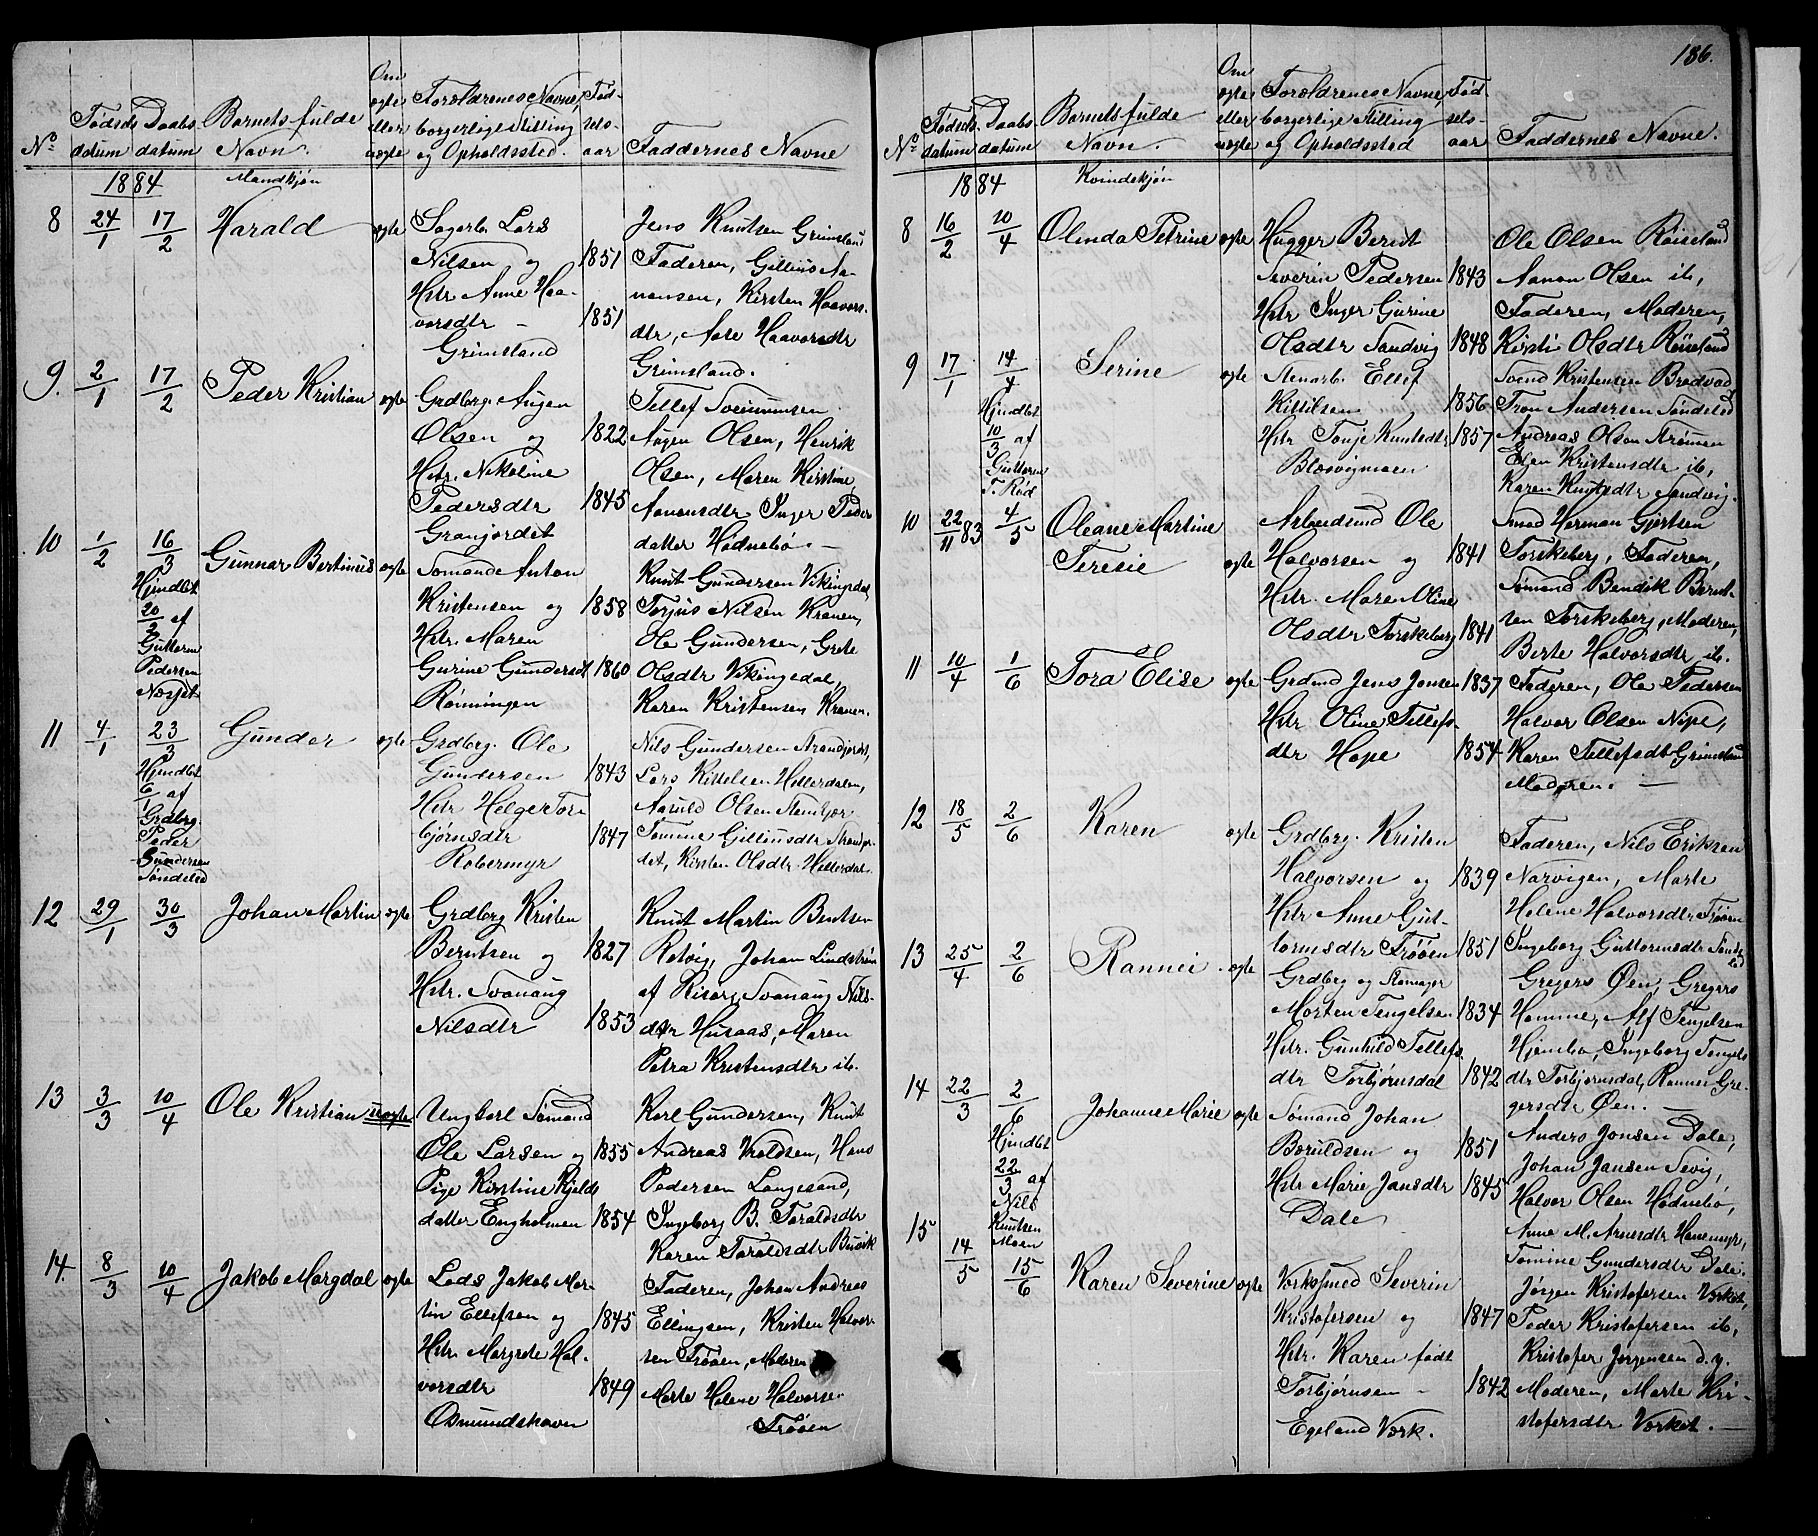 186.
No
Fødsels datum
Daabs datum
Barnets fulde Navn.
Om ægte eller uægte
Forældrenes Navne, borgerlige Stilling og Opholdssted.
Fødselsaar
Faddernes Navne
1884
Mandkjøn
8 24/1 17/2 Harald ægte
Lars
Nilsen og 1851
Hstr. Anne Haa-
vorsdtr - 1851
Grimsland
Jens Knutsen Grimsland
Faderen, Gillius Aa-
nonsen, Kirsten Haavors-
dtr, Aase Haavorsdtr
Grimsland.
9. 2/1 17/2 Peder Kristian ægte
Grdbrg. Augen
Olsen og 1822
Hstr. Nikoline
Pedersdtr 1845
Granjordet
Tellef Sveinunsen
Aagen Olsen, Henrik
Olsen, Maren Kirstine
Aanonsdtr Inger Peder
datter Hødnebø. -
10 1/2 16/3 Gunnar Bertinius ægte
Hjmdbt
20/2 af
Guttorm
Pedersen
Næsjet
Sømand Anton
Kristensen og 1858
Hstr. Maren
Gurine Gundersdt 1860
Rønningen
Knut Gundersen Vikingsdal
Torjus Nilsen Kranen,
Ole Gundersen, Grete
Olsdtr Vikingsdal,
Karen Kristensen Kranen.
11 4/1 23/3 Gunder ægte
Hjmdbt
6/1 af
Grdbrg.
Peder
Gundersen
Søndeled
Grdbrg. Ole
Gundersen 1843
Hstr. Helge Tor-
bjørnsdtr 1847
Røbermyr
Nils Gundersen Strandjordet,
Lars Kittelsen Hellerdalen,
Aanuld Olsen
Tomine Gilliusdtr Strandjor-
det, Kirsten Olsdtr. Hellerdal.
12 29/1 30/3 Johan Martin ægte
Grdbrg Kristen
Berntsen og 1827
Hstr. Svanaug
Nilsdtr 1853
Knut Martin Bentsen
Retvig, Johan Lindstrøm
af Risør, Svanaug Nils-
dtr Husaas, Maren
Petra Kristensdtr ib.
13 3/3 10/4 Ole Kristian uægte
Ungkarl Sømand
Ole Larsen og 1855
Pige Kirstine Kjelds
datter Engholmen 1854
Karl Gundersen, Knut
Andreas Vroldsen, Hans
Pedersen Langesand,
Ingeborg B. Taraldsdtr
Karen Taraldsdtr Busvik
14. 8/3 10/4 Jakob Margdal ægte
Lods Jakob Mar-
tin Ellefsen og 1845
Hstr. Margrete Hal-
vorsdtr 1849
Osmundshavn
Faderen, Johan Andreas
Ellingsen, Kristen Halvor-
sen Trøen, Moderen
Marte Helene Halvorsen
Trøen
No
Fødsels datum
Daabs datum
Barnets fulde Navn.
Om ægte eller uægte
Forældrenes Navne, borgerlige Stilling og Opholdssted
Fødselsaar
Faddernes Navne.
1884
Kvindekjøn
8 16/2 10/4 Olinda Petrine ægte
Hugger Berent
Severin Pedersen 1843
Hstr Inger Gurine
Olsdtr Sandvig 1848
Ole Olsen Røiseland
Aanon Olsen ib,
Faderen, Moderen,
Kirsti Olsdtr Røiseland
9 17/1 14/4 Serine ægte
Hjmdbt
10/3 af
Guttorm
T. Rød
Stenarb. Ellef
Kittilsen 1856
Hstr Tonje Knutsdtr 1857
Blesvigmoen
Svend Kristensen Bradvad
Tron Andersen Søndeled
Andreas Olsen Strømmen
Elen Kristensdtr ib,
Karen Knutsdtr Sandvig.
10 22/11 83 4/5 Oleane Martine
Teresie ægte
Arbeidsmd Ole
Halvorsen og 1841
Hstr. Maren Oline
Olsdtr Torskeberg 1841
Smed Herman Gjertsen
Torskeberg, Faderen,
Sømand Bendik Bernt-
sen Torskeberg, Moderen,
Berte Halvorsdtr ib.
11 10/4 1/6 Tora Elise ægte
Grdmd Jens Jonsen 1837
Hstr Oline Tellefs-
dtr Hope 1854
Faderen, Ole Pedersen
Halvor Olsen Nipe,
Karen Tellefsdt Grimsland
Moderen. -
12 18/5 2/6 Karen ægte
Grdbrg. Kristen
Halvorsen og 1839
Hstr. Anne Gut-
tormsdtr Trøen 1851
Faderen, Nils Eriksen
Narvigen, Marte
Helene Halvorsdtr Trøen
Ingeborg Guttormsdtr Sønde-
led
13 25/4 2/6 Rannei. ægte
Grdbrg og
Morten Tengelsen 1834
Hstr. Gunhild Tellefs-
dtr Torbjørnsdal 1842
Gregers Øen, Gregers
Homme, Alf Tengelsen
Hjembø, Ingeborg Tengels
dtr Torbjørnsdal, Rannei Gre-
gersdtr Øen. -
14 22/3 2/6 Johanne Marie ægte
Hjmdbt
22/3 af
Nils
Knutsen
Moen
Sømand Johan
Boruldsen og 1851
Hstr Marie Jansdtr 1845
Dale
Anders Jonsen Dale,
Johan Jansen Sevig,
Halvor Olsen Hødnebø,
Anne M. Arnesdtr Hanemyr,
Tomine Gundersdtr Dale.
15 14/5 15/6 Karen Severine ægte
Verksmed Severin
Kristofersen og 1847
Hstr. Karen født
Torbjørnsen - 1842
Egeland Verk.
Jørgen Kristofersen Verket,
Peder Kristofersen ib,
Kristofer Jørgensen d. y.
Moderen, Marte Kri-
stofersdtr Verket. -